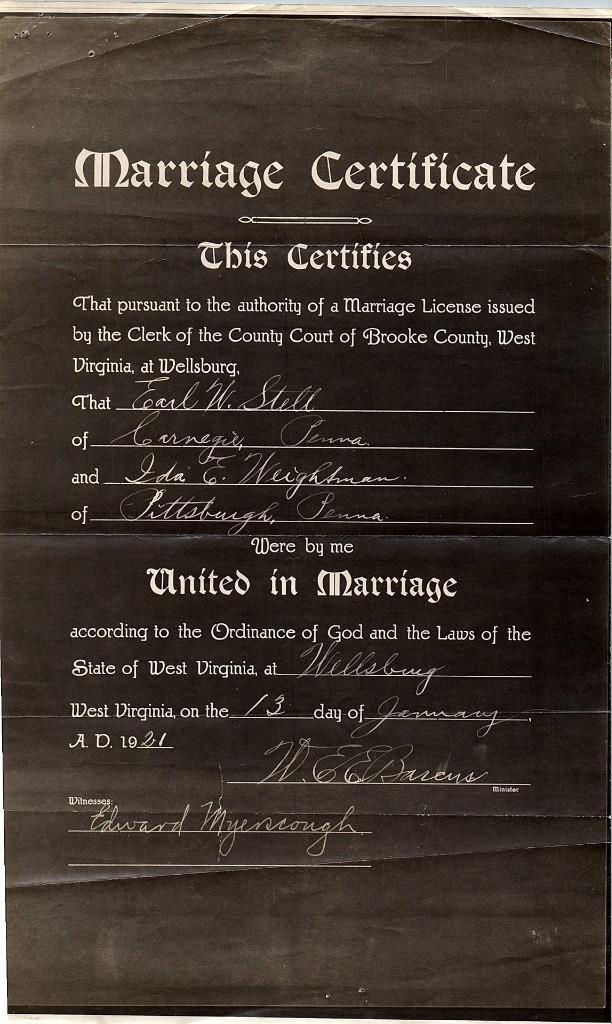 Marriage Certificate
This Certifies
That pursuant to the authority of a Marriage License issued
by the Clerk of the County Court of Brooke County, West
Virginia, at Wellsburg,
That Earl W. Stell
of Carnegie, Penna.
and Ida E. Weightman.
of Pittsburgh, Penna.
Were by me
United in Marriage
according to the Ordinance of God and the Laws of the
State of West Virginia, at Wellsburg
West Virginia, on the 13 day of January,
A. D. 1921
W. E. E. Barcus
Minister
Witnesses:
Edward Myerscough